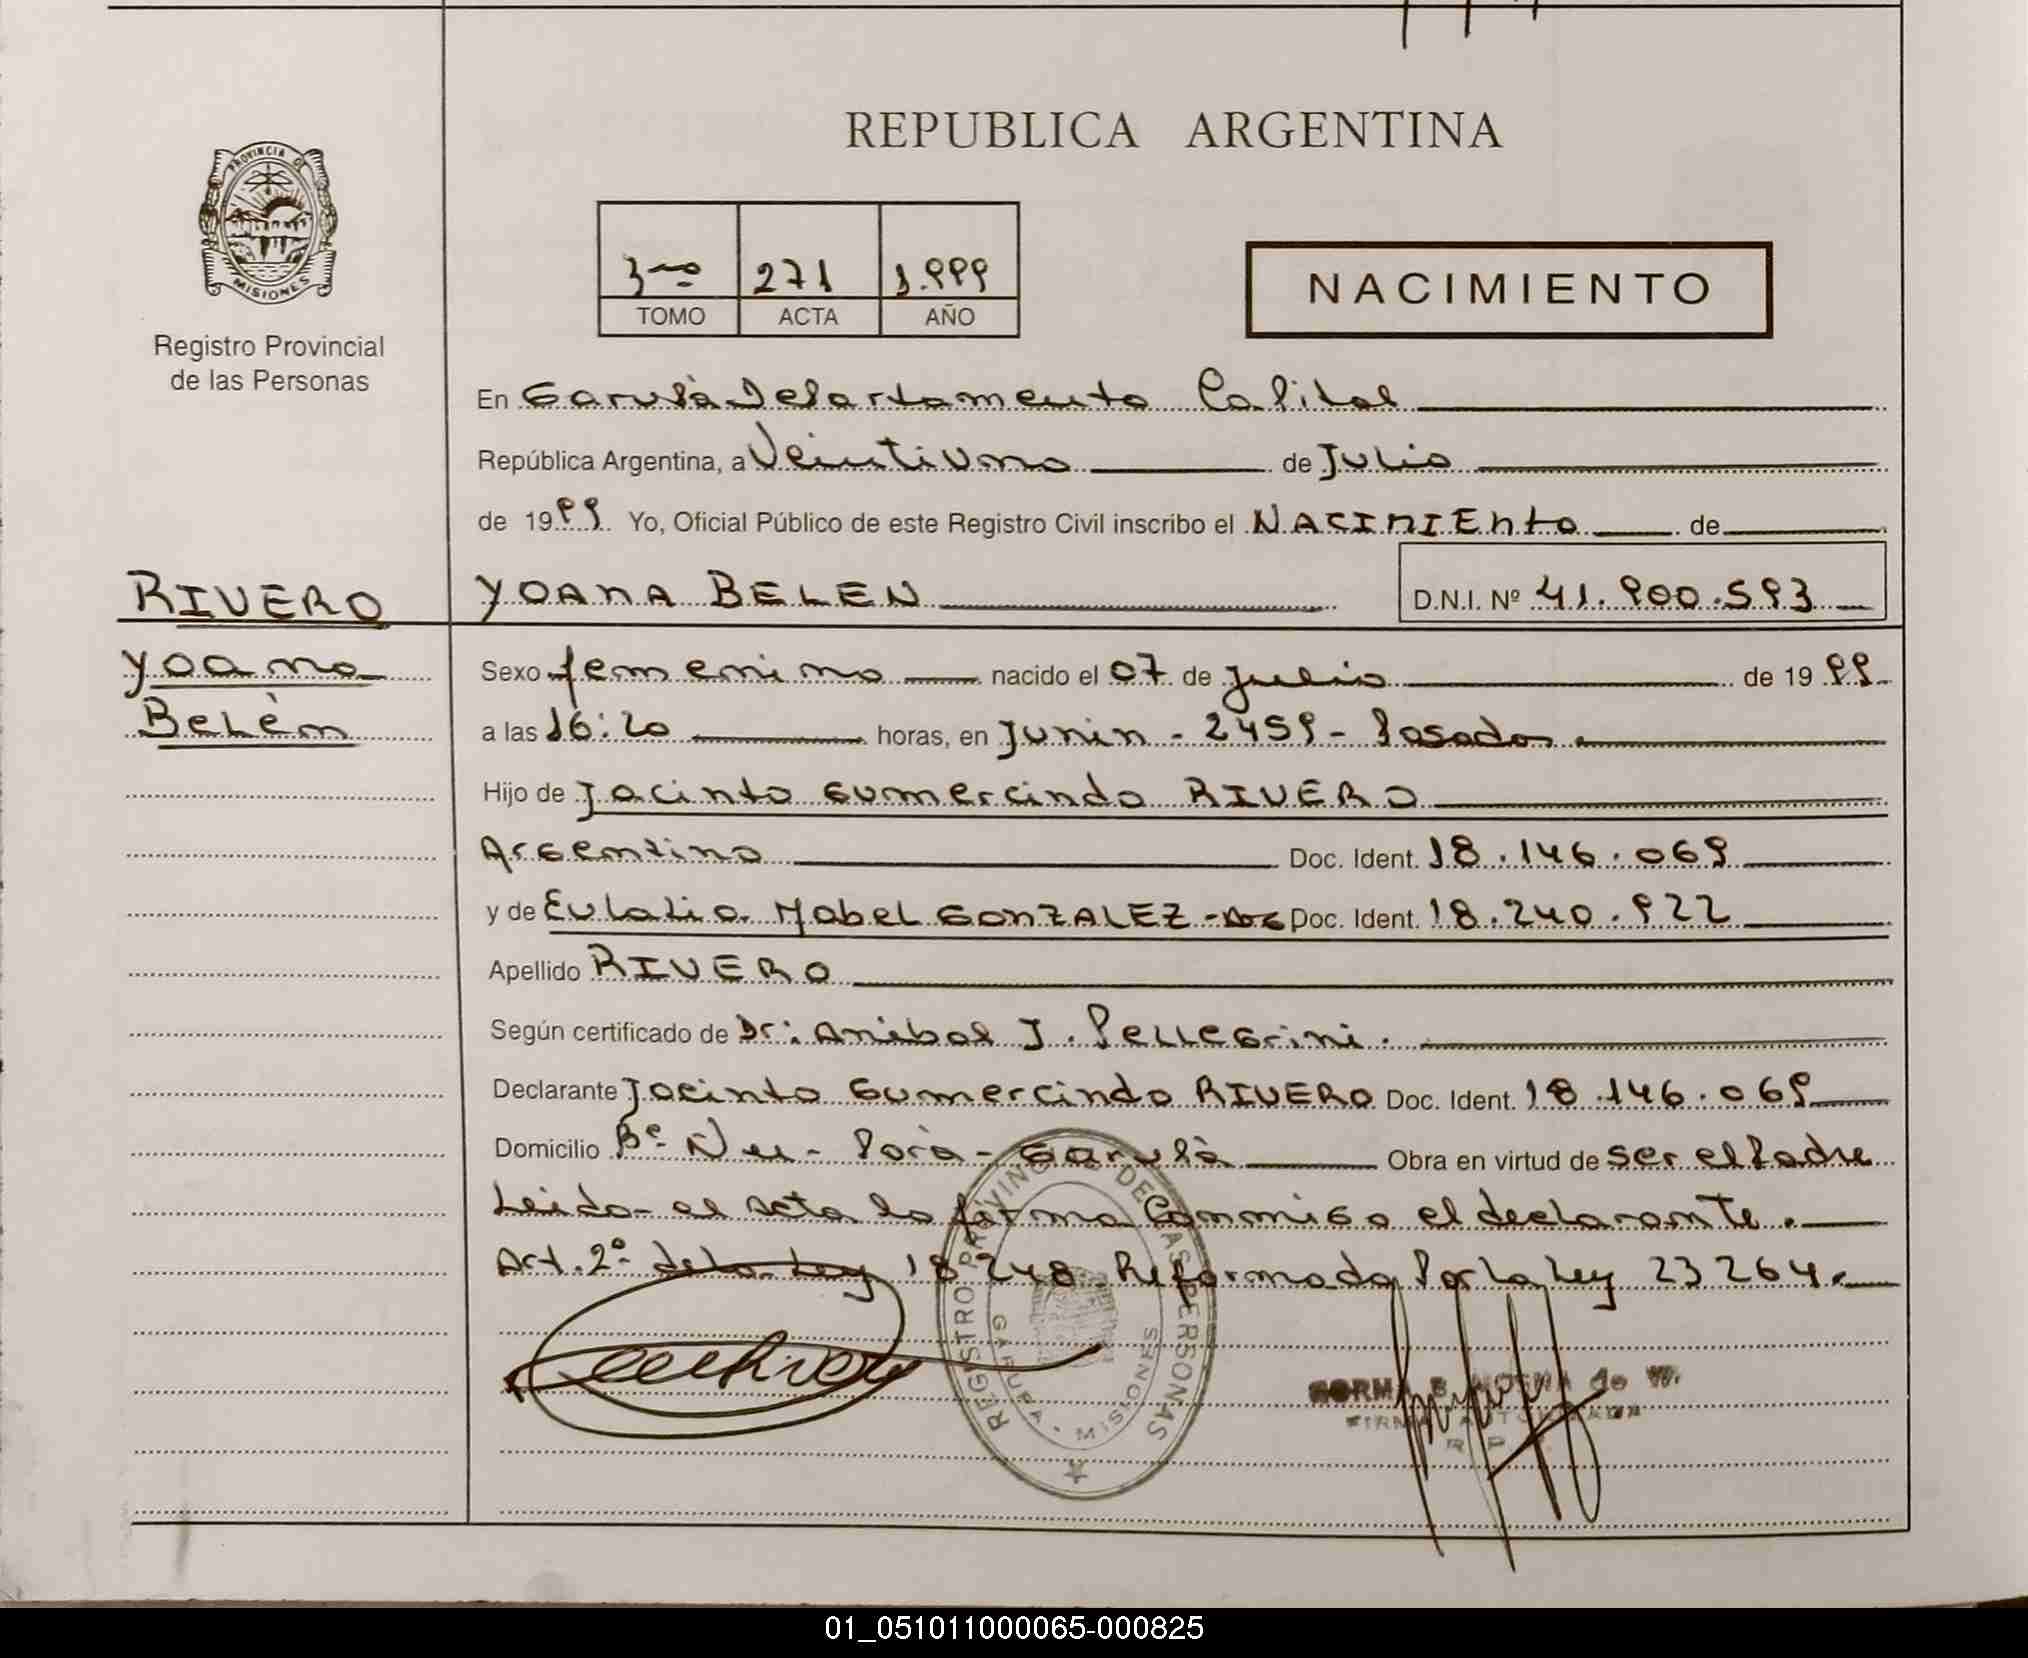 REPUBLICA ARGENTINA
PROVINCIA DE
MISIONES
Registro Provincial
de las Personas
3ro 271 1.999
TOMO ACTA AÑO
NACIMIENTO
En Garupà Departamento Capital
República Argentina, a Veintiuno de Julio
de 1999 Yo, Oficial Público de este Registro Civil inscribo el NACIMIENTO de
RIVERO
YOANA BELEN D.N.I. Nº 41.900.593
Yoana
Belèn
Sexo femenino nacido el 07 de Julio de 1999
a las 16:20 horas, en Junin - 2459 - Posadas.
Hijo de Jacinto Gumercindo RIVERO
Argentino Doc. Ident. 18.146.069
y de Eulalia Mabel GONZALEZ - Doc. Ident. 18.240.922
Apellido RIVERO
Según certificado de Dr: Anibal J. Pellegrini.
Declarante Jacinto Gumercindo RIVERO Doc. Ident. 18.146.069
Domicilio Bº Ñu - Porà - Garupà Obra en virtud de ser el Padre
Leida el acta la firma Conmigo el declarante.
Art. 2º de la Ley 18248 Reformada Por la Ley 23264.
REGISTRO PROVINCIAL DE LAS PERSONAS
GARUPA - MISIONES
NORMA B. de W.
FIRMA AUTORIZADA
R P
01_051011000065-000825